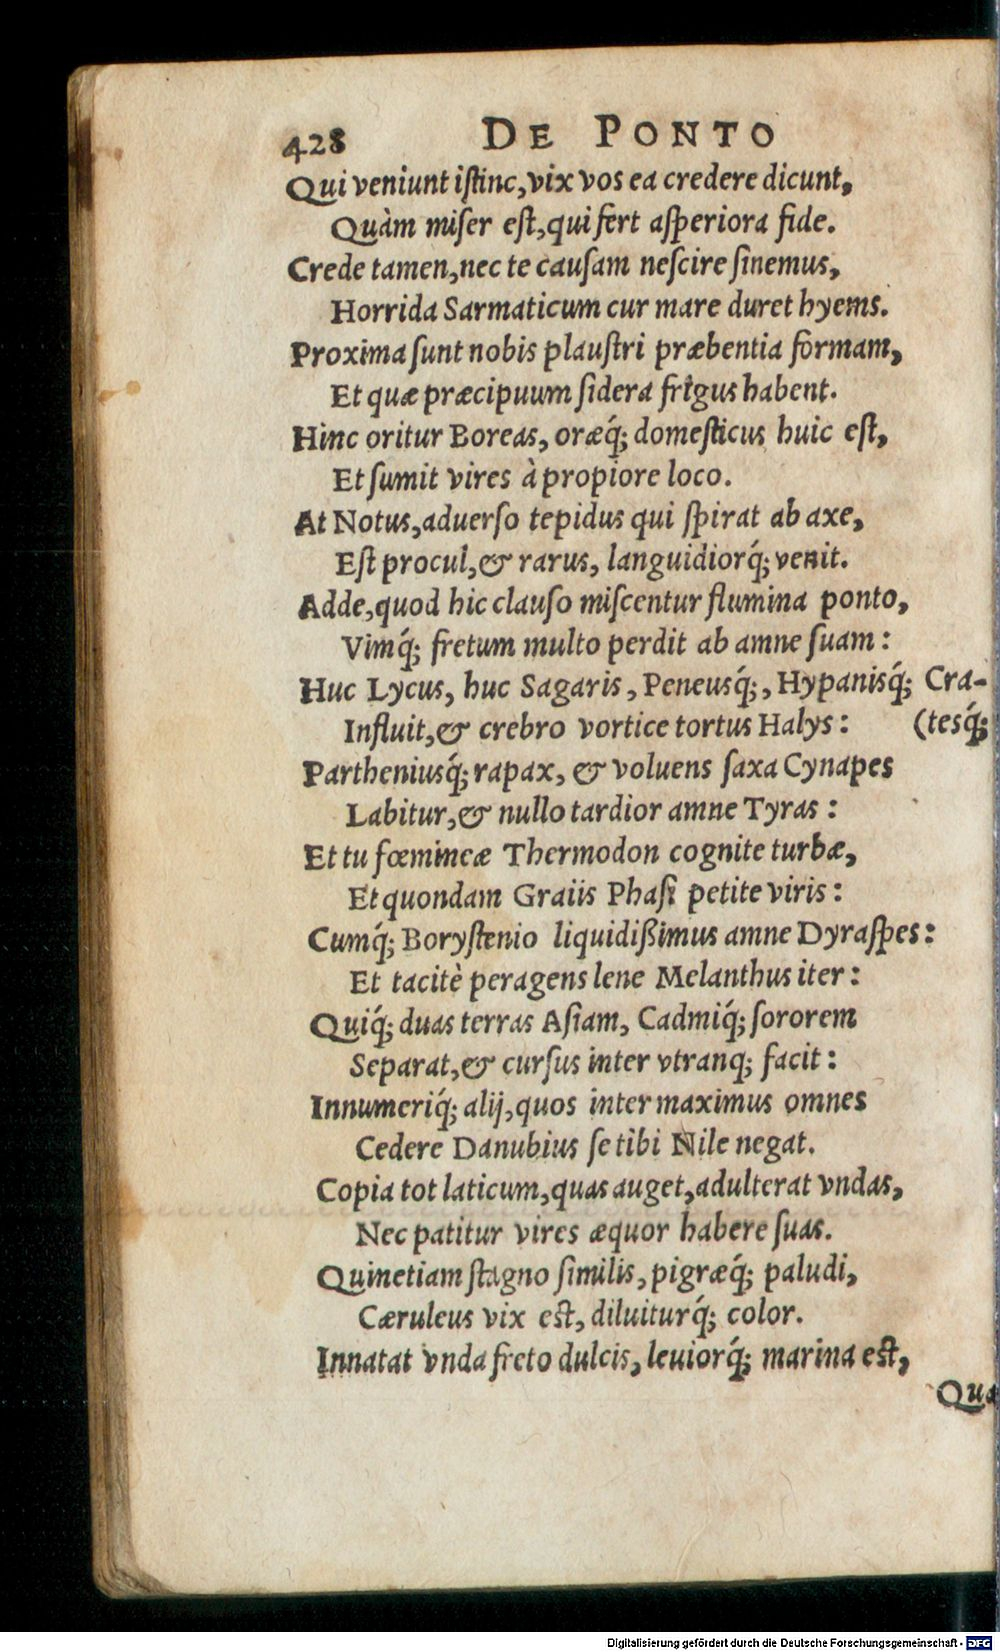 428 DE PONTO
Qui veniunt iſtinc, vix vos ea credere dicunt,
Quàm miſer eſt, qui fert aſperiora fide.
Crede tamen, nec te cauſam neſcire ſinemus,
Horrida Sarmaticum cur mare duret hyems.
Proxima ſunt nobis plauſtri præbentia formam,
Et quæ præcipuum ſidera frigus habent.
Hinc oritur Boreas, oræq́; domeſticus huic eſt,
Et ſumit vires à propiore loco.
At Notus, aduerſo tepidus qui ſpirat ab axe,
Eſt procul, & rarus, languidiorq́; venit.
Adde, quod hic clauſo miſcentur flumina ponto,
Vimq́; fretum multo perdit ab amne ſuam:
Huc Lycus, huc Sagaris, Peneusq́;, Hypanisq́; Cra-
Influit, & crebro vortice tortus Halys: (tesq́;
Partheniusq́; rapax, & voluens ſaxa Cynapes
Labitur, & nullo tardior amne Tyras:
Et tu fœmineæ Thermodon cognite turbæ,
Et quondam Graiis Phaſi petite viris:
Cumq́; Boryſtenio liquidißimus amne Dyraſpes:
Et tacitè peragens lene Melanthus iter:
Quiq́; duas terras Aſiam, Cadmiq́; ſororem
Separat, & curſus inter vtranq; facit:
Innumeriq́; alij, quos inter maximus omnes
Cedere Danubius ſe tibi Nile negat.
Copia tot laticum, quas auget, adulterat vndas,
Nec patitur vires æquor habere ſuas.
Quinetiam ſtagno ſimilis, pigræq́; paludi,
Cæruleus vix eſt, diluiturq́; color.
Innatat vnda freto dulcis, leuiorq́; marina eſt,
Qua
Digitalisierung gefördert durch die Deutsche Forschungsgemeinschaft - DFG